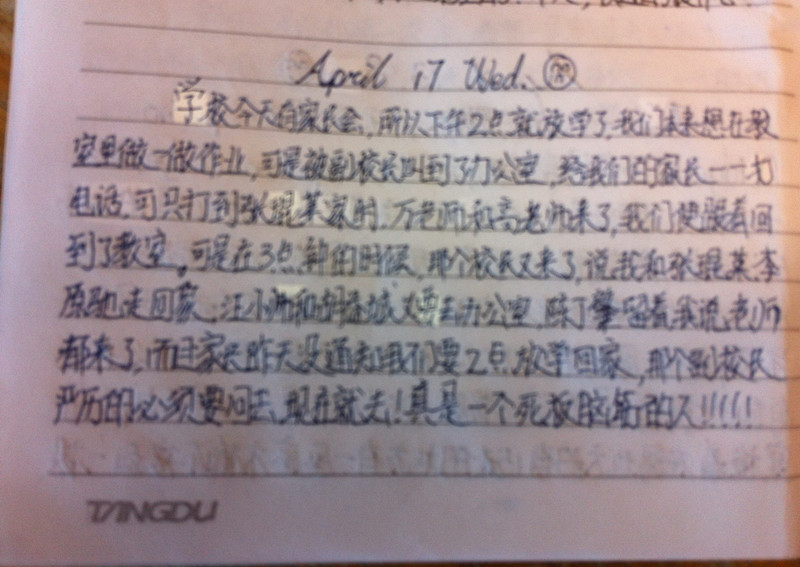 April 17 Wed.
学校今天有家长会,所以下午2点就放学了,我们本来想在教
室里做一做作业,可是被副校长叫到了办公室,给我们的家长一一打
电话.可只打到张琨某家时.万老师和高老师来了,我们便跟着回
到了教室。可是在3点钟的时候,那个校长又来了,说我和张琨某李
原驰走回家.汪小 和 城又 办公室.陈丁肇留着.我说老师
都来了,而且家长昨天没通知我们要2点放学回家,那个副校长
严厉的必须要回去,现在就去!真是一个死板脑筋的人!!!!!
TANGDU